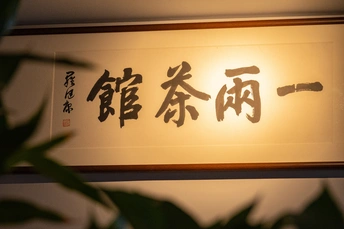 一兩茶館